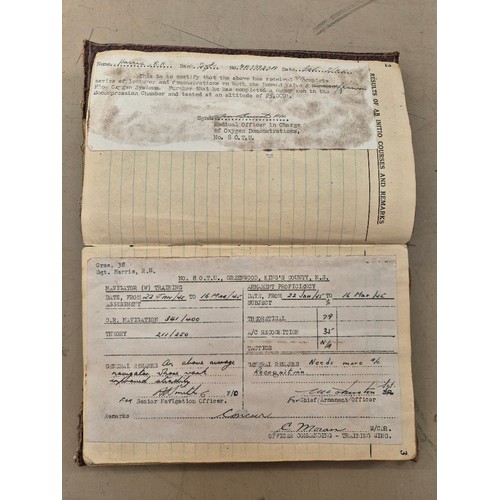 Name. Harris, R.N. Rank. Sgt. No. Date.
This is to certify that the above has received a complete
series of lectures and demonstrations on both the Demand Valve &
Flow Oxygen Systems. Further that he has completed a test run in the
Decompression Chamber and tested at an altitude of 25,000'.
Sgnd.
Medical Officer in Charge
of Oxygen Demonstrations,
No. 8 O.T.U.
RESULTS OF AB INITIO COURSES AND REMARKS
Crse. 38
Sgt. Harris, R.N.
No. 8 O.T.U., GREENWOOD, KING'S COUNTY, N.S.
NAVIGATOR (W) TRAINING
ARMAMENT PROFICIENCY
DATE, FROM 22 Jan/45 to 16 Mar/45
DATE, FROM 22 Jan/45 to 16 Mar/45
ASSESSMENT
SUBJECT %
D.R. NAVIGATION 341/400
THEORETICAL 79
THEORY 211/250
A/C RECOGNITION 35
TACTICS N/A
GENERAL REMARKS An above average navigator whose work improved steadily
GENERAL REMARKS Needs more a/c Recognition
Smith F/O
for Senior Navigation Officer.
Johnston
for Chief Armament Officer
Remarks Concur
C Moran W/CDR.
OFFICER COMMANDING - TRAINING WING.
3